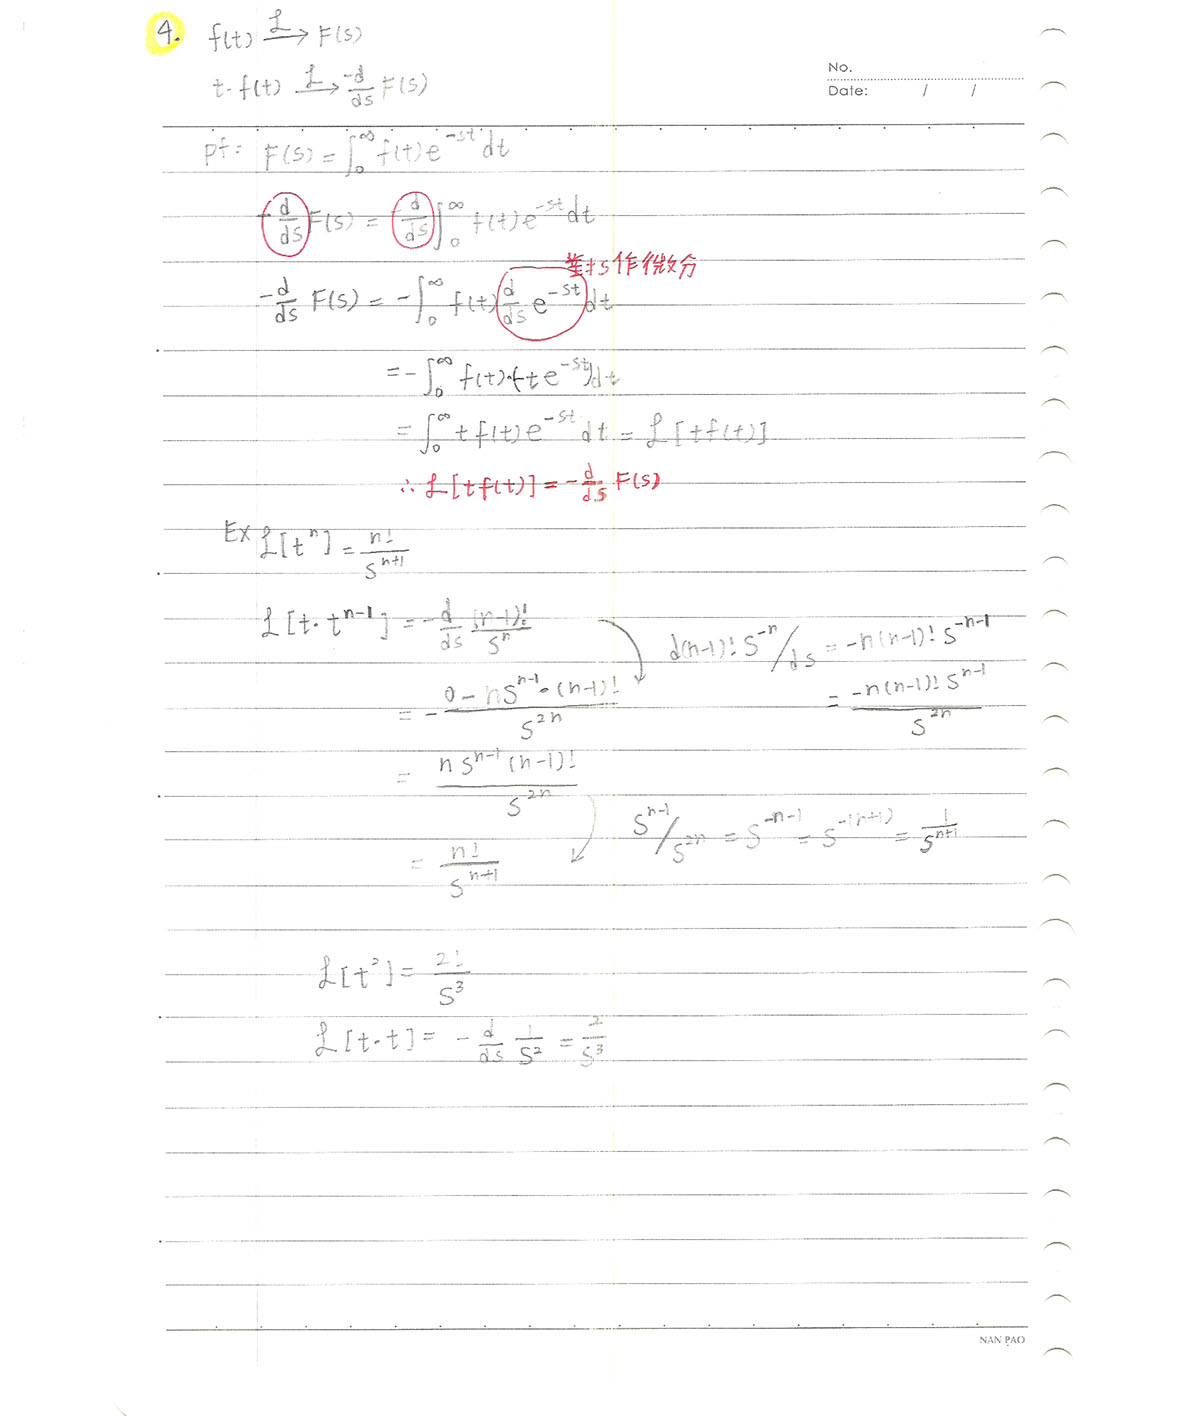 4. f(t) ℒ→ F(s)
t·f(t) ℒ→ -d/ds F(s)
No.
Date: / /
pf: F(s) = ∫₀^∞ f(t)e^-st dt
-d/ds F(s) = -d/ds ∫₀^∞ f(t)e^-st dt
對s作微分
-d/ds F(s) = -∫₀^∞ f(t) d/ds e^-st dt
= -∫₀^∞ f(t)·(-te^-st)dt
= ∫₀^∞ t f(t)e^-st dt = ℒ[tf(t)]
∴ ℒ[tf(t)] = -d/ds F(s)
Ex ℒ[t^n] = n!/s^n+1
ℒ[t·t^n-1] = -d/ds (n-1)!/s^n
d(n-1)! s^-n/ds = -n(n-1)! s^-n-1
= - 0-ns^n-1·(n-1)!/s^2n
= -n(n-1)! s^n-1/s^2n
= ns^n-1(n-1)!/s^2n
s^n-1/s^2n = s^-n-1 = s^-(n+1) = 1/s^n+1
= n!/s^n+1
ℒ[t²] = 2!/s³
ℒ[t·t] = -d/ds 1/s² = 2/s³
NAN PAO